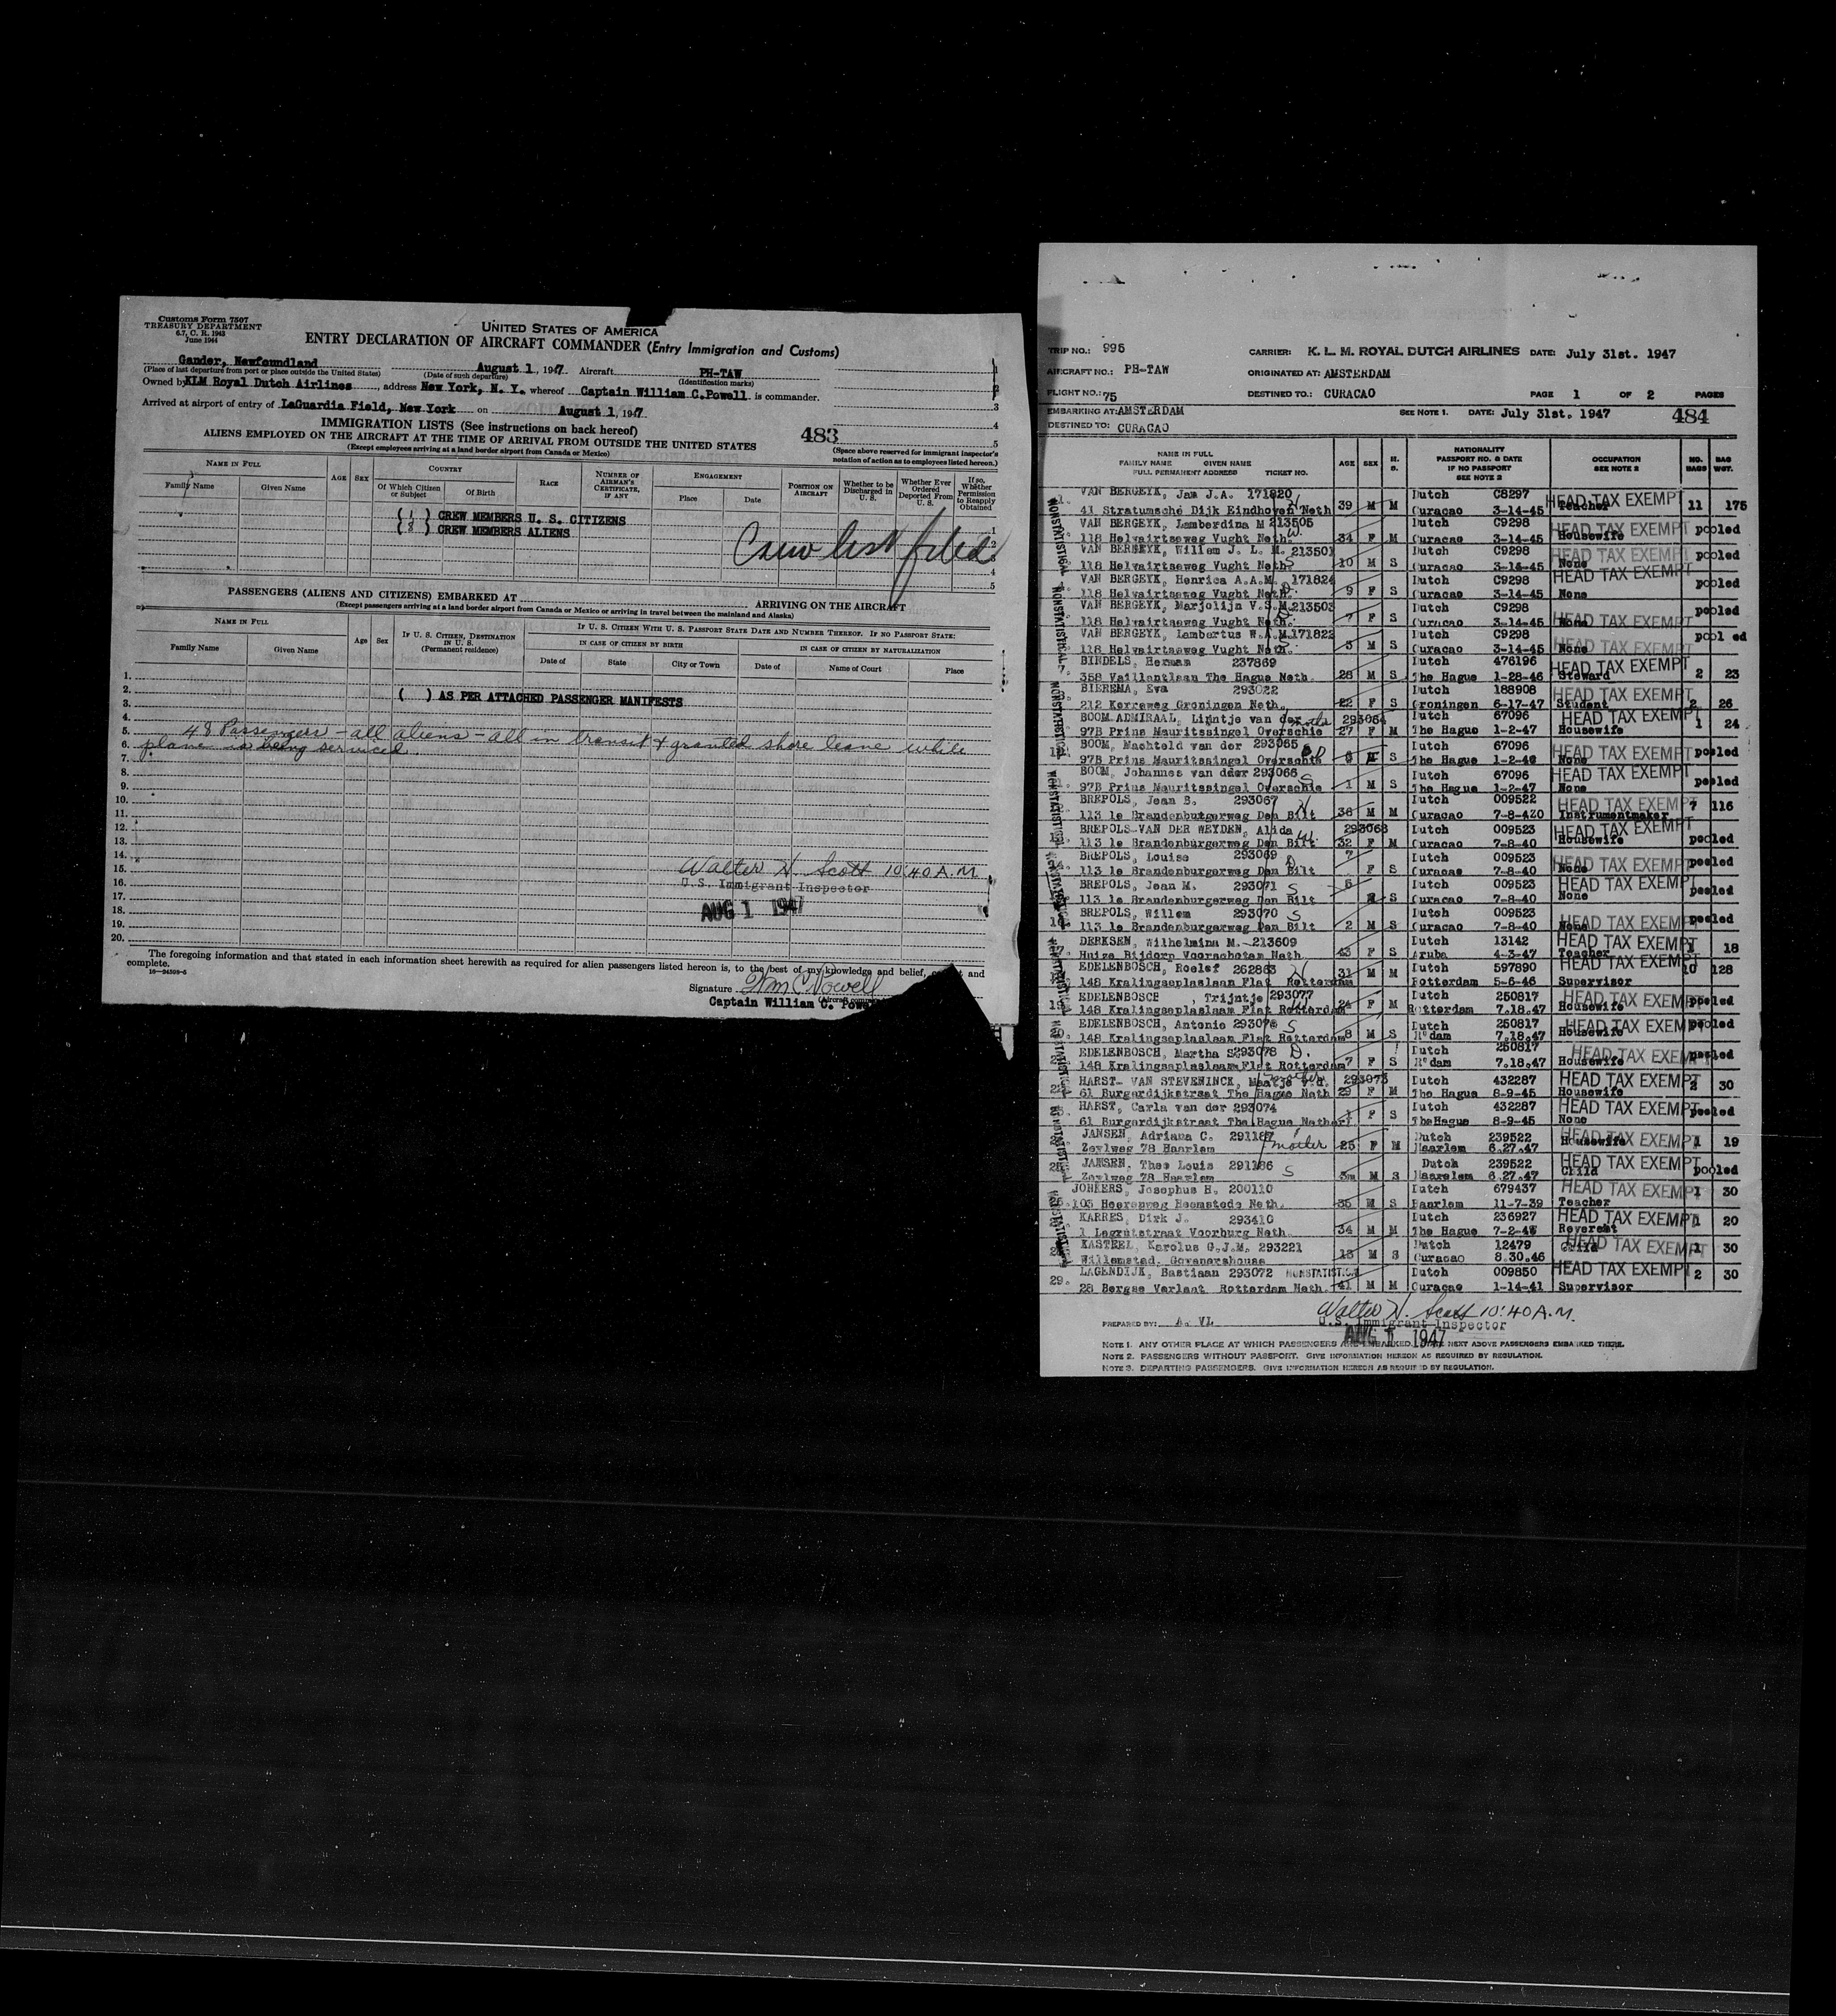 Customs Form 7507
TREASURY DEPARTMENT
6.7, C. R. 1943
June 1944
UNITED STATES OF AMERICA
ENTRY DECLARATION OF AIRCRAFT COMMANDER (Entry Immigration and Customs)
Gander, Newfoundland August 1, 1947 Aircraft PH-TAW
(Place of last departure from port or place outside the United States) (Date of such departure) (Identification marks)
Owned by KLM Royal Dutch Airlines, address New York, N. Y. whereof Captain William C. Powell is commander.
Arrived at airport of entry of LaGuardia Field, New York on August 1, 1947
IMMIGRATION LISTS (See instructions on back hereof)
483
ALIENS EMPLOYED ON THE AIRCRAFT AT THE TIME OF ARRIVAL FROM OUTSIDE THE UNITED STATES
(Except employees arriving at a land border airport from Canada or Mexico)
(Space above reserved for immigrant inspector's notation of action as to employees listed hereon.)
NAME IN FULL AGE SEX COUNTRY RACE NUMBER OF AIRMAN'S CERTIFICATE, IF ANY ENGAGEMENT POSITION ON AIRCRAFT Whether to be Discharged in U. S. Whether Ever Ordered Deported From U. S. If so, Whether Permission to Reapply Obtained
Family Name Given Name Of Which Citizen or Subject Of Birth Place Date
( 1 ) CREW MEMBERS U. S. CITIZENS
( 8 ) CREW MEMBERS ALIENS
Crew list filed
PASSENGERS (ALIENS AND CITIZENS) EMBARKED AT ARRIVING ON THE AIRCRAFT
(Except passengers arriving at a land border airport from Canada or Mexico or arriving in travel between the mainland and Alaska)
NAME IN FULL Age Sex IF U. S. CITIZEN, DESTINATION IN U. S. (Permanent residence) IF U. S. CITIZEN WITH U. S. PASSPORT STATE DATE AND NUMBER THEREOF. IF NO PASSPORT STATE:
IN CASE OF CITIZEN BY BIRTH IN CASE OF CITIZEN BY NATURALIZATION
Family Name Given Name Date of State City or Town Date of Name of Court Place
1.
2.
( ) AS PER ATTACHED PASSENGER MANIFESTS
3.
4.
5. 48 Passengers - all aliens - all in transit & granted shore leave while
6. plane is being serviced.
7.
8.
9.
10.
11.
12.
13.
14.
15. Walter H. Scott 10:40 A.M.
16. U.S. Immigrant Inspector
17. AUG 1 1947
18.
19.
20.
The foregoing information and that stated in each information sheet herewith as required for alien passengers listed hereon is, to the best of my knowledge and belief, and
complete.
16-24309-5
Signature Wm C Powell
Captain William C.
TRIP NO.: 995 CARRIER: K. L. M. ROYAL DUTCH AIRLINES DATE: July 31st. 1947
AIRCRAFT NO.: PH-TAW ORIGINATED AT: AMSTERDAM
FLIGHT NO.: 75 DESTINED TO: CURACAO PAGE 1 OF 2 PAGES
EMBARKING AT: AMSTERDAM SEE NOTE 1. DATE: July 31st. 1947 484
DESTINED TO: CURACAO
NAME IN FULL AGE SEX M. S. NATIONALITY OCCUPATION NO. BAGS BAG WGT.
FAMILY NAME GIVEN NAME PASSPORT NO. & DATE SEE NOTE 2
FULL PERMANENT ADDRESS TICKET NO. IF NO PASSPORT
SEE NOTE 2
VAN BERGEYK, Jam J.A. 171820 Dutch C8297 HEAD TAX EXEMPT
41 Stratumsche Dijk Eindhoven Neth 39 M M Curacao 3-14-45 Teacher 11 175
VAN BERGEYK, Lamberdina M 213505 W. Dutch C9298 HEAD TAX EXEMPT
118 Helvairtseweg Vught Neth. 34 F M Curacao 3-14-45 Housewife pooled
VAN BERGEYK, Willem J. L. M. 213501 Dutch C9298 HEAD TAX EXEMPT
118 Helvairtseweg Vught Neth. 10 M S Curacao 3-14-45 None pooled
VAN BERGEYK, Henrica A.A.M. 171824 Dutch C9298 HEAD TAX EXEMPT
118 Helvairtseweg Vught Neth. 9 F S Curacao 3-14-45 None pooled
VAN BERGEYK, Marjolijn V.S.M. 213503 Dutch C9298 pooled
118 Helvairtseweg Vught Neth. 7 F S Curacao 3-14-45 None HEAD TAX EXEMPT
VAN BERGEYK, Lambertus W.A.M. 171822 Dutch C9298 pool ed
118 Helvairtseweg Vught Neth. 3 M S Curacao 3-14-45 None HEAD TAX EXEMPT
BINDELS, Herman 237869 Dutch 476196 HEAD TAX EXEMPT
358 Vaillantlaan The Hague Neth. 28 M S The Hague 1-28-46 Steward 2 23
BIEREMA, Eva 293022 Dutch 188908 HEAD TAX EXEMPT
212 Korreweg Groningen Neth. 22 F S Groningen 6-17-47 Student 2 26
BOOM ADMIRAAL, Lijntje van der mother 293064 Dutch 67096 HEAD TAX EXEMPT
97B Prins Mauritssingel Overschie 27 F M The Hague 1-2-47 Housewife 1 24
BOOM, Machteld van der 293065 D Dutch 67096 HEAD TAX EXEMPT
97B Prins Mauritssingel Overschie S The Hague None pooled
BOOM, Johannes van dder 293066 S Dutch 67096 HEAD TAX EXEMPT
97B Prins Mauritssingel Overschie 1 M S The Hague 1-2-47 None pooled
BREPOLS, Jean B. 293067 H Dutch 009522 HEAD TAX EXEMPT 7 116
113 1e Brandenburgerweg Den Bilt 36 M M Curacao 7-8-4Z0 Instrumentmaker
BREPOLS-VAN DER WEYDEN, Alida W. 293068 Dutch 009523 HEAD TAX EXEMPT
113 1e Brandenburgerweg Den Bilt 32 F M Curacao 7-8-40 Housewife pooled
BREPOLS, Louise 293069 D 7 Dutch 009523 HEAD TAX EXEMPT pooled
113 1e Brandenburgerweg Den Bilt F S Curacao 7-8-40 None
BREPOLS, Jean M. 293071 S 6 Dutch 009523 HEAD TAX EXEMPT
113 1e Brandenburgerweg Den Bilt M S Curacao 7-8-40 None pooled
BREPOLS, Willem 293070 S Dutch 009523
113 1e Brandenburgerweg Den Bilt 2 M S Curacao 7-8-40 None HEAD TAX EXEMPT pooled
DERKSEN, Wilhelmina M. 213609 Dutch 13142 HEAD TAX EXEMPT 1 18
Huize Bijdorp Voorschoten Neth. 43 F S Aruba 4-3-47 Teacher
EDELENBOSCH, Roelof 262883 H 31 M M Dutch 597890 HEAD TAX EXEMPT 10 128
148 Kralingseplaslaan Flat Rotterdam Rotterdam 5-6-46 Supervisor
EDELENBOSCH, Trijntje 293077 W 24 F M Dutch 250817 HEAD TAX EXEMPT pooled
148 Kralingseplaslaam Flat Rotterdam Rotterdam 7.18.47 Housewife
EDELENBOSCH, Antonie 293076 S Dutch 250817 HEAD TAX EXEMPT pooled
148 Kralingseplaslaan Flat Rotterdam 8 M S R'dam 7.18.47 Housewife
EDELENBOSCH, Martha S 293078 D. Dutch 250817 HEAD TAX EXEMPT pooled
148 Kralingseplaslaam Flat Rotterdam 7 F S R'dam 7.18.47 Housewife
HARST- VAN STEVENINCK, Maatje v.d. mother 293073 Dutch 432287 HEAD TAX EXEMPT 2 30
61 Burgerdijkstraat The Hague Neth 29 F M The Hague 8-9-45 Housewife
HARST, Carla van der 293074 Dutch 432287 HEAD TAX EXEMPT pooled
61 Burgerdijkstraat The Hague Nether 1 F S TheHague 8-9-45 None
JANSEN, Adriana C. 291187 mother Dutch 239522 HEAD TAX EXEMPT
Zeylweg 78 Haarlem 25 F M Haarlem 6.27.47 Housewife 1 19
JANSEN, Theo Louis 291186 S Dutch 239522 HEAD TAX EXEMPT
Zeylweg 78 Haarlem 3m M S Haarelem 6.27.47 Child pooled
JONKERS, Josephus H. 200110 Dutch 679437 HEAD TAX EXEMPT 1 30
103 Heerenweg Heemstede Neth. 35 M S Haarlem 11-7-39 Teacher
KARRES, Dirk J. 293410 Dutch 236927 HEAD TAX EXEMPT 1 20
34 M M The Hague Reverent
KASTEEL, Karolus G.J.M. 293221 Dutch 12479 HEAD TAX EXEMPT 1 30
Willemstad, 13 M S Curacao 8.30.46 Child
29. LAGENDIJK, Bastiaan 293072 NONSTATISTICAL Dutch 009850 HEAD TAX EXEMPT 2 30
25 Bergse Verlaat Rotterdam Neth. 41 M M Curacao 1-14-41 Supervisor
Walter H. Scott 10:40 A.M.
PREPARED BY: U.S. Immigrant Inspector
AUG 1 1947
NOTE 1. ANY OTHER PLACE AT WHICH PASSENGERS ARE EMBARKED. NEXT ABOVE PASSENGERS EMBARKED THERE.
NOTE 2. PASSENGERS WITHOUT PASSPORT. GIVE INFORMATION HEREON AS REQUIRED BY REGULATION.
NOTE 3. DEPARTING PASSENGERS. GIVE INFORMATION HEREON AS REQUIRED BY REGULATION.